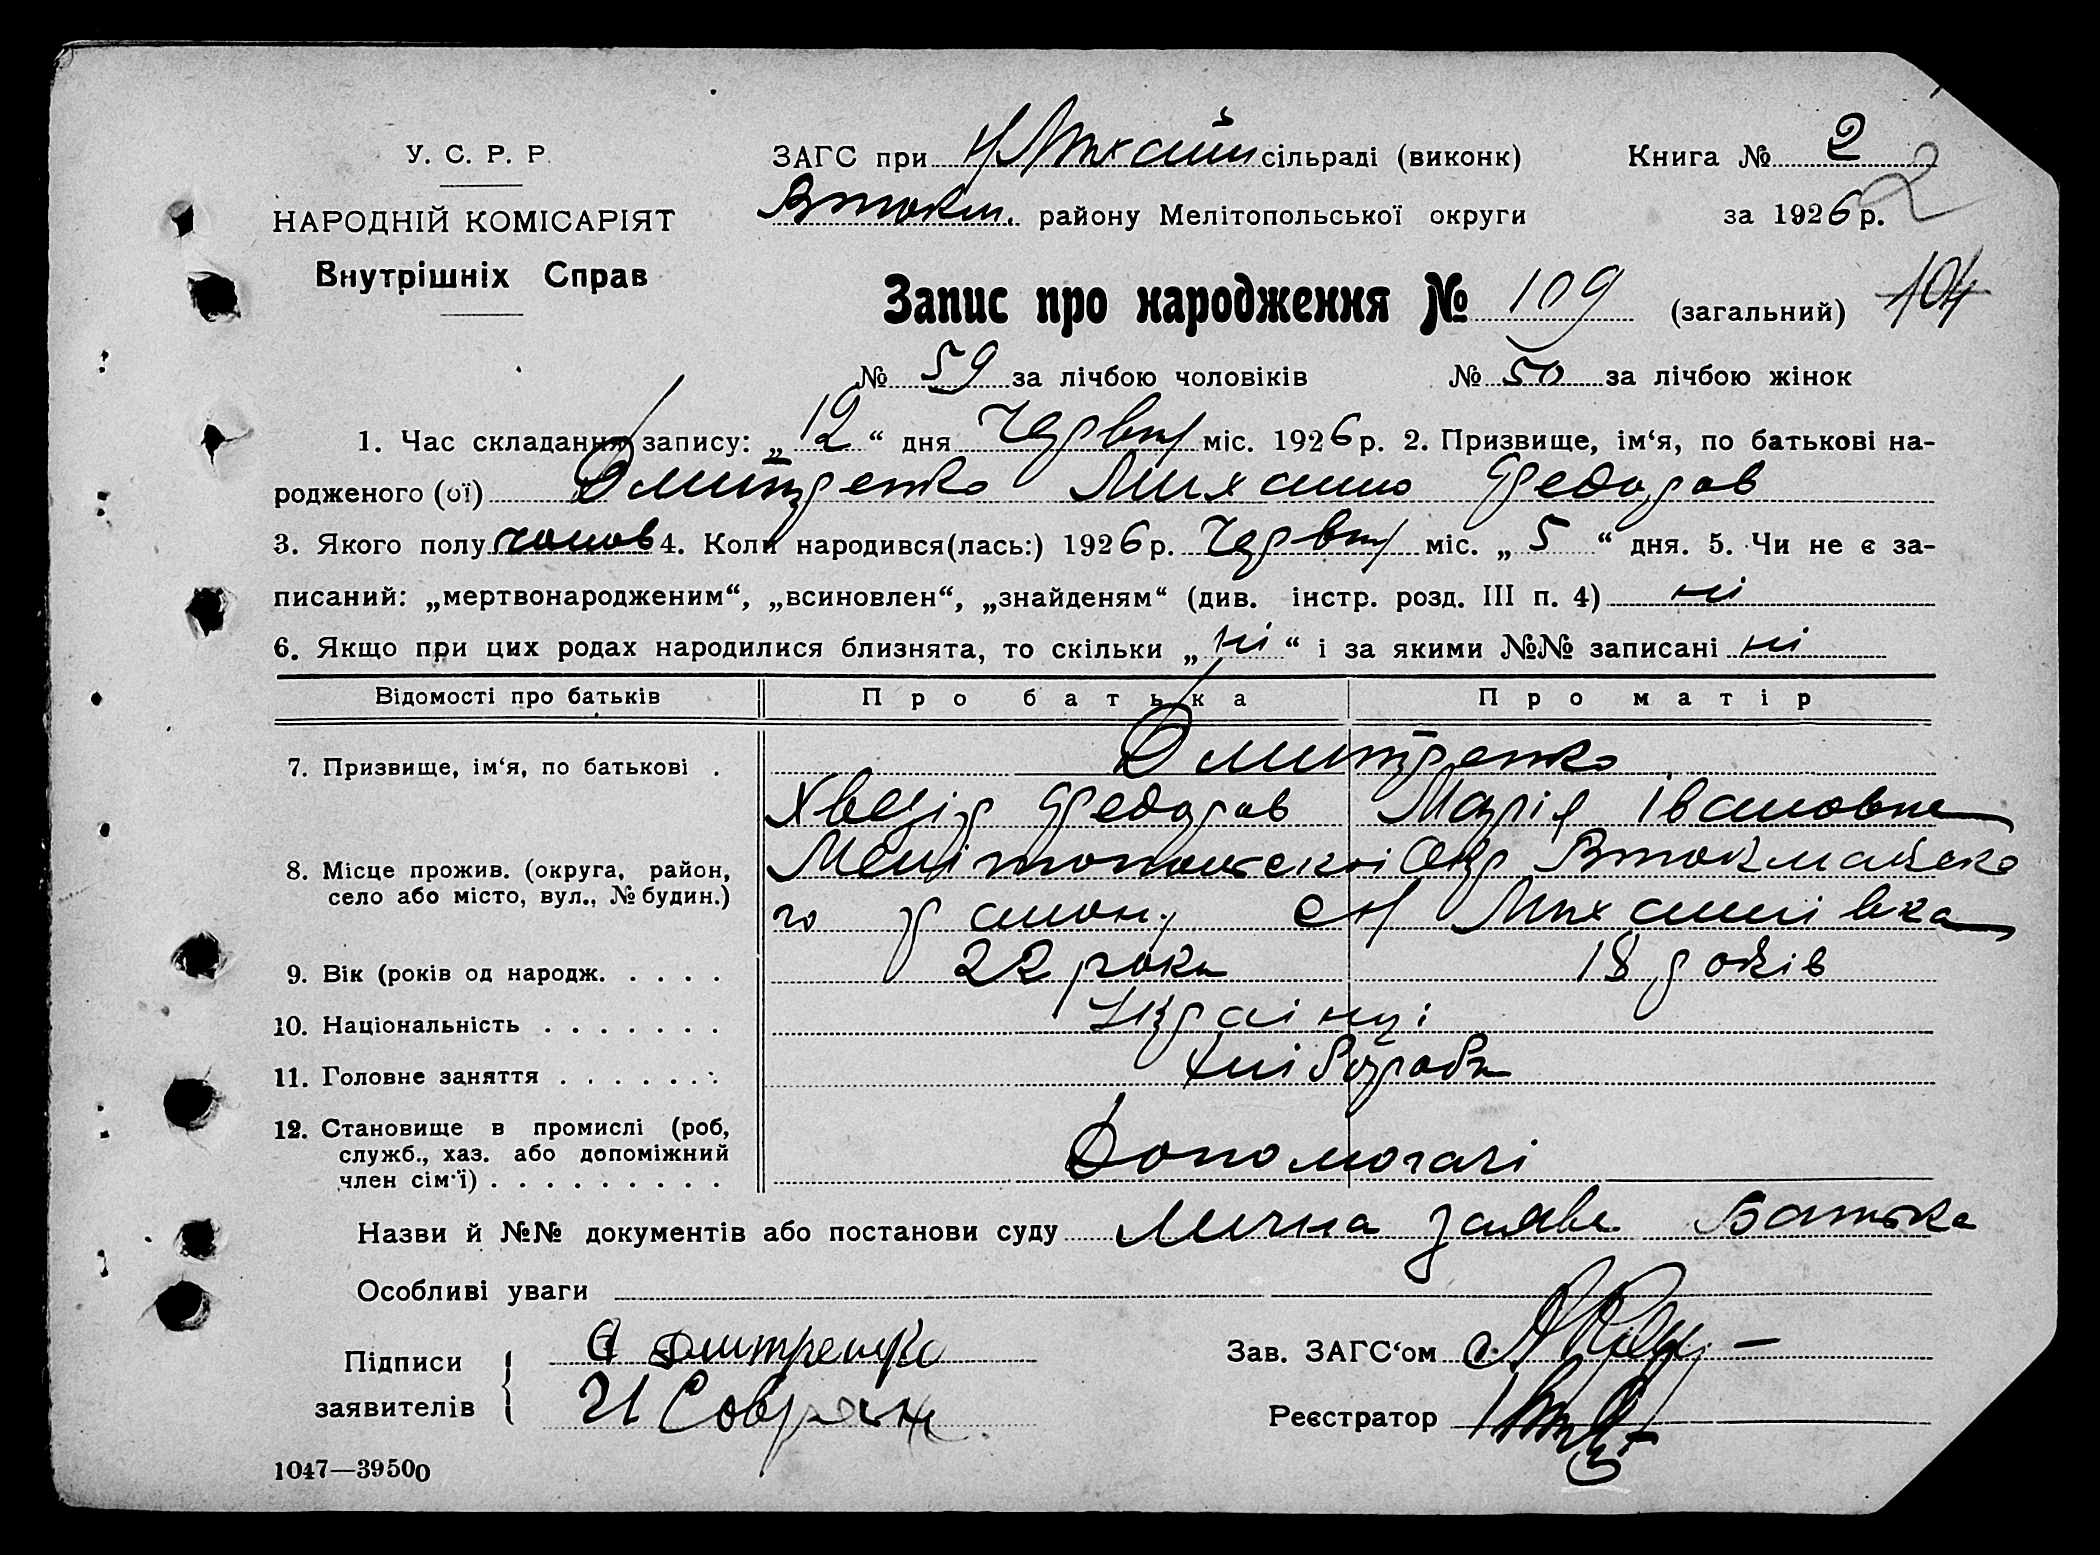 У. С. Р. Р.
НАРОДНІЙ КОМІСАРІЯТ
Внутрішніх Справ
ЗАГС при Н Михайл сільраді (виконк)
Втокм. району Мелітопольської округи
Книга № 2
2
за 1926 р.
Запис про народження № 109 (загальний) 104
№ 59 за лічбою чоловіків № 50 за лічбою жінок
1. Час складання запису: „ 12 “ дня Червня міс. 1926 р. 2. Призвище, ім‘я, по батькові на-
родженого (ої) Дмитренко Михайло Федоров
3. Якого полу чолов 4. Коли народився(лась:) 1926 р. Червня міс. „ 5 “ дня. 5. Чи не є за-
писаний: „мертвонародженим“, „всиновлен“, „знайденям“ (див. інстр. розд. III п. 4) ні
6. Якщо при цих родах народилися близнята, то скільки „ ні “ і за якими №№ записані ні
Відомості про батьків Про батька Про матір
7. Призвище, ім‘я, по батькові . Дмитренко
Хведір Федоров Марія Івановна
8. Місце прожив. (округа, район,
село або місто, вул., № будин.)
Мелітопольської Окр Втокмайсько
го району с Н Михайлівка
9. Вік (років од народж. . . . . 22 роки 18 років
10. Національність . . . . . . . Українці
11. Головне заняття . . . . . . . Хлібороби
12. Становище в промислі (роб,
служб., хаз. або допоміжний
член сім‘ї) . . . . . . . . . Допомогачі
Назви й №№ документів або постанови суду Лична заява Батька
Особливі уваги
Підписи
заявителів
Дмитренко
И
Зав. ЗАГС‘ом
Реєстратор
1047—39500